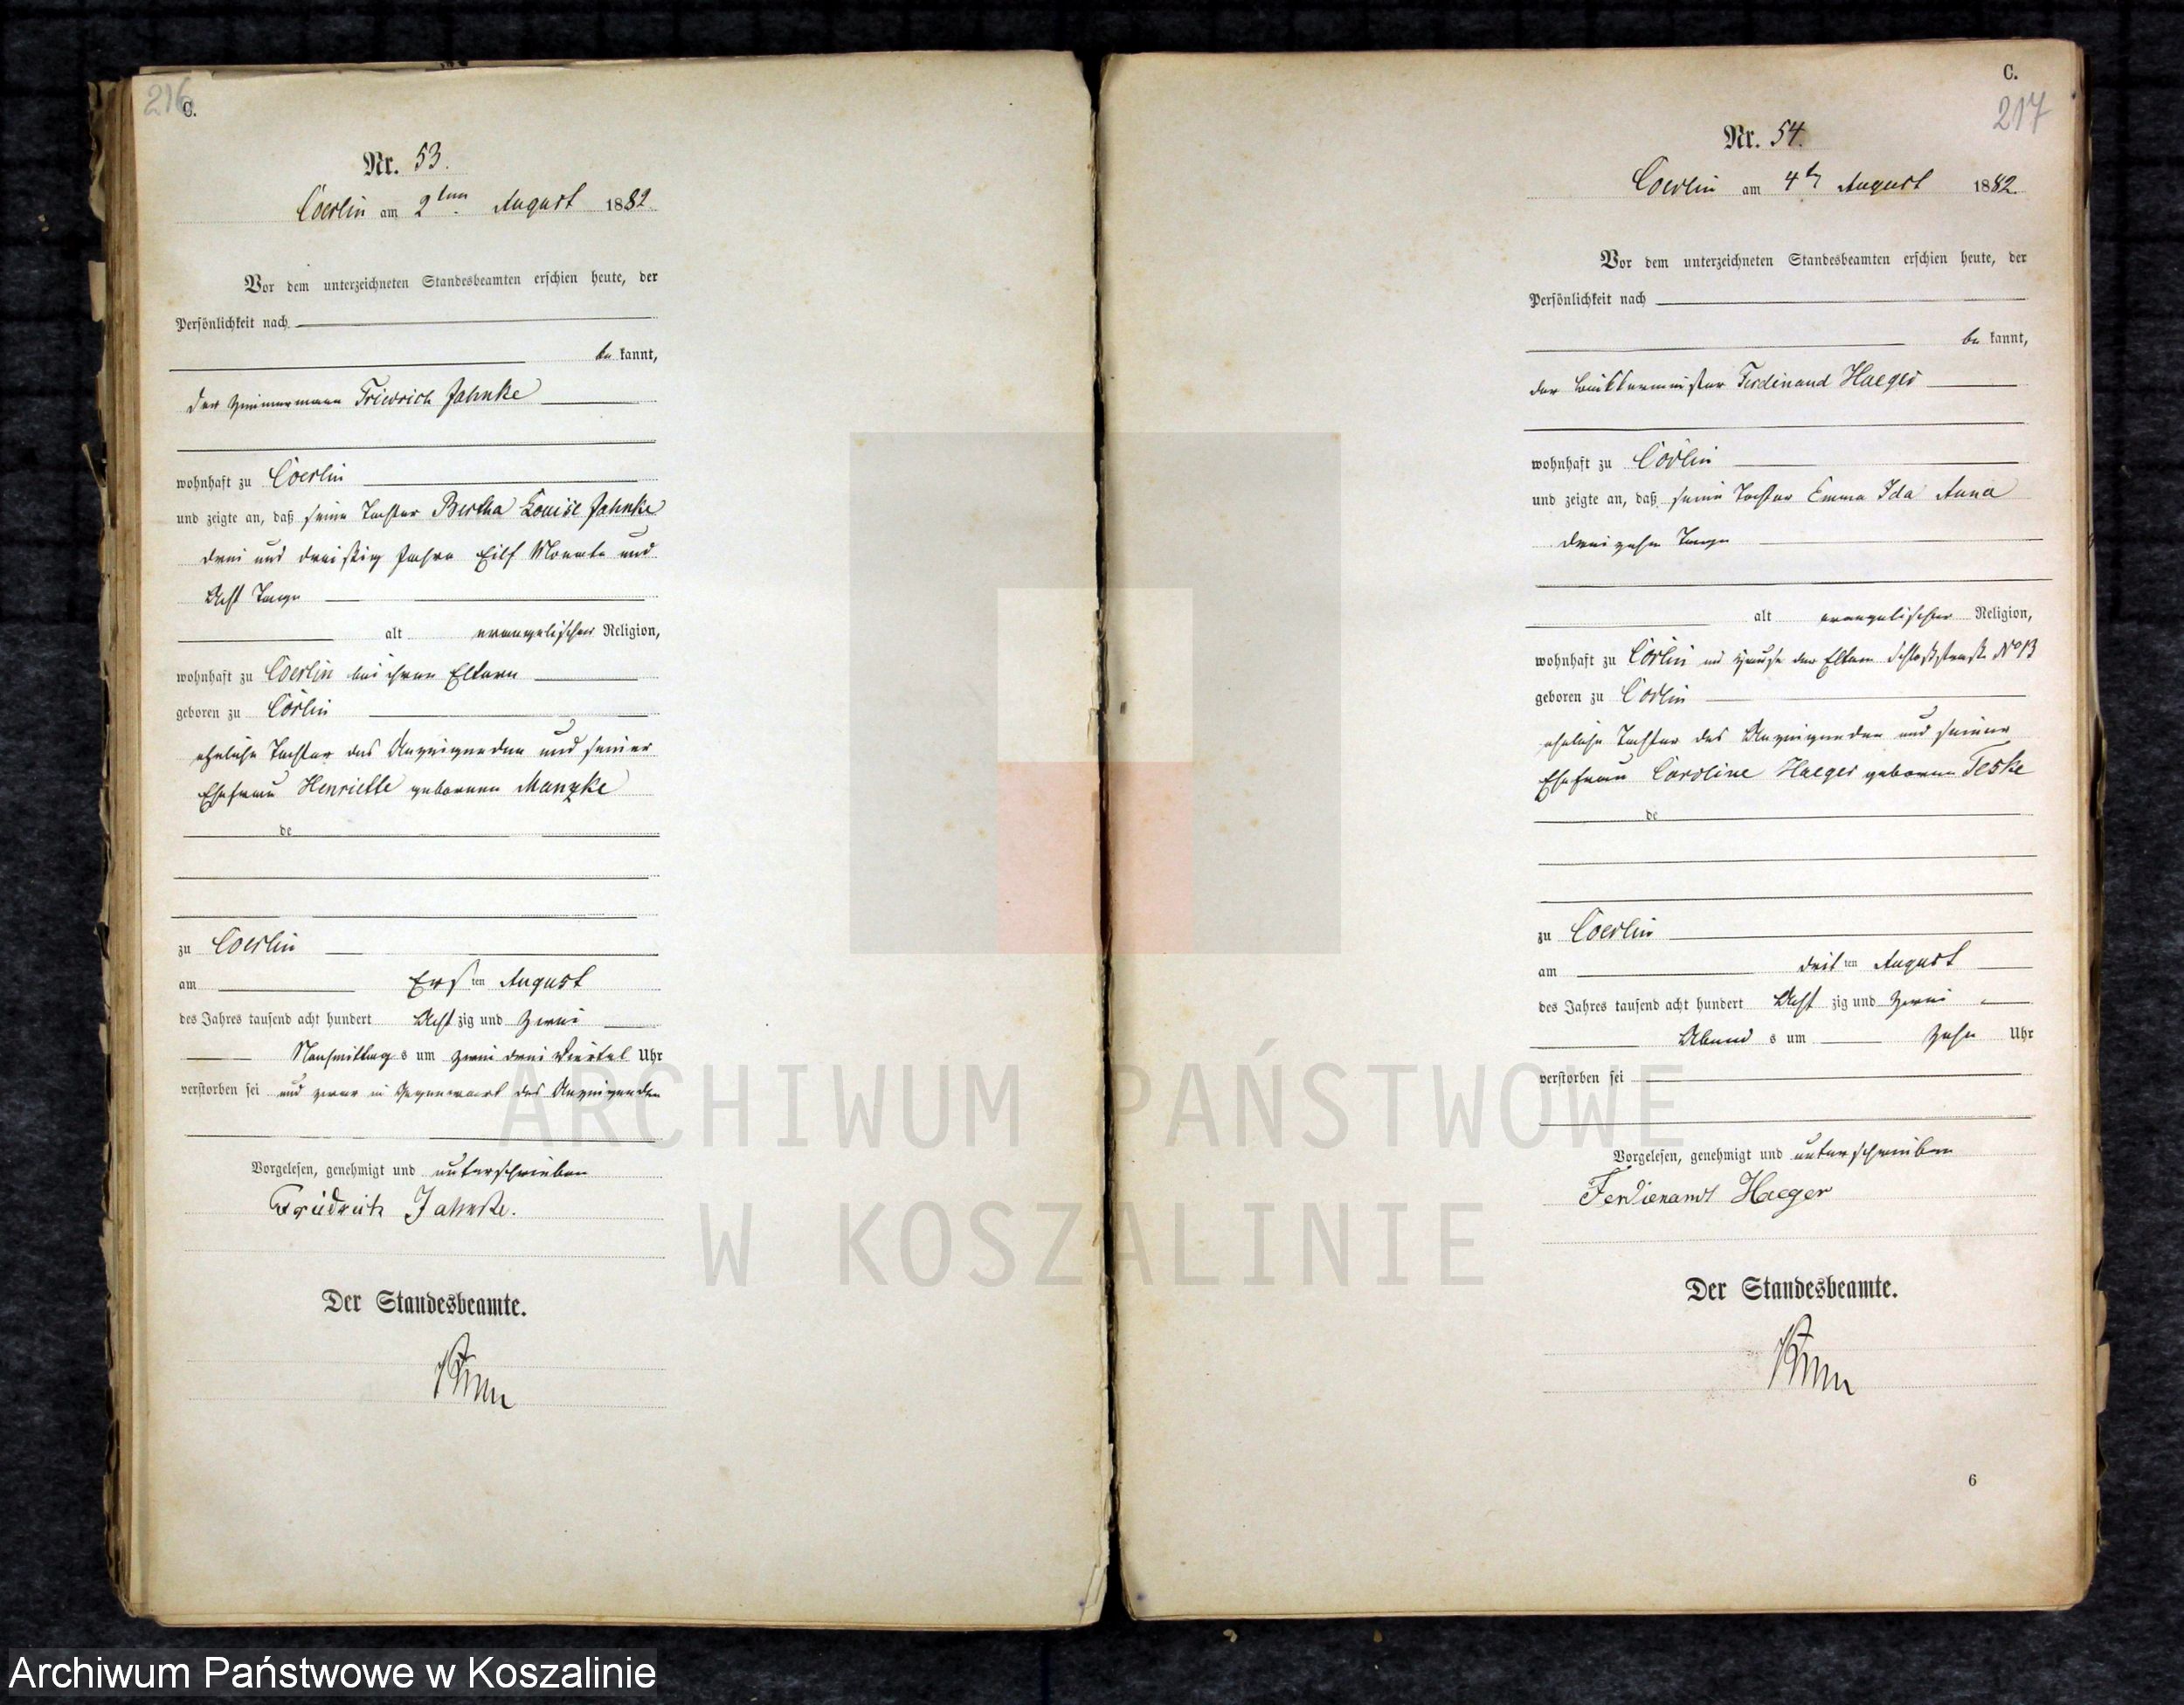 216
C.
Nr. 53.
Coerlin am 2ten August 1882
Vor dem unterzeichneten Standesbeamten erschien heute, der
Persönlichkeit nach
be kannt,
der Zimmermann Friedrich Jahnke
wohnhaft zu Coerlin
und zeigte an, daß seine Tochter Bertha Louise Jahnke
drei und dreißig Jahre Eilf Monate und
Acht Tage
alt evangelischer Religion,
wohnhaft zu Coerlin bei ihren Eltern
geboren zu Cörlin
eheliche Tochter des Anzeigenden und seiner
Ehefrau Henriette geborenen Manzke
de
zu Coerlin
am Ersten August
des Jahres tausend acht hundert Acht zig und Zwei
Nachmittag s um zwei drei Viertel Uhr
verstorben sei und zwar in Gegenwart des Anzeigenden
Vorgelesen, genehmigt und unterschrieben
Friedrich Jahnke.
Der Standesbeamte.
C.
217
Nr. 54.
Coerlin am 4ten August 1882
Vor dem unterzeichneten Standesbeamten erschien heute, der
Persönlichkeit nach
be kannt,
der Ferdinand Haeger
wohnhaft zu Cörlin
und zeigte an, daß seine Tochter Emma Ida Anna
dreizehn Tage
alt evangelischer Religion,
wohnhaft zu Cörlin im Hause der Eltern Schloßstraße No 13
geboren zu Cörlin
eheliche Tochter des Anzeigenden und seiner
Ehefrau Caroline Haeger geborene Teske
de
zu Coerlin
am dritten August
des Jahres tausend acht hundert Acht zig und Zwei
Abend s um Zehn Uhr
verstorben sei
Vorgelesen, genehmigt und unterschrieben
Ferdienandt Haeger
Der Standesbeamte.
6
ARCHIWUM PAŃSTWOWE
W KOSZALINIE
Archiwum Państwowe w Koszalinie